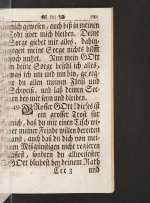 mich gewesen, auch biß in meinen
Todt aber mich bleiben. Deine
Sorge giebet mir alles, dahin-
gegen meine Sorge nichts hilfft
noch nutzet. Nun mein GOtt
deine Sorge befihl ich alles,
was ich um und um bin, ge
du zu allen meinen Thun und
Schweiß, und laß deinen See-
gen bey mir seyn und bleiben.
GRosser GOtt! dieses ist
ein grosser Trost für
mich, daß du mir einen Tisch we-
meiner Feinde willen bereitest
und daß du dich von mei-
Mißgünstigen nicht regieren
lassest, sondern du allweiser
GOtt bleibest bey deinem Rath
Ccc 3 und